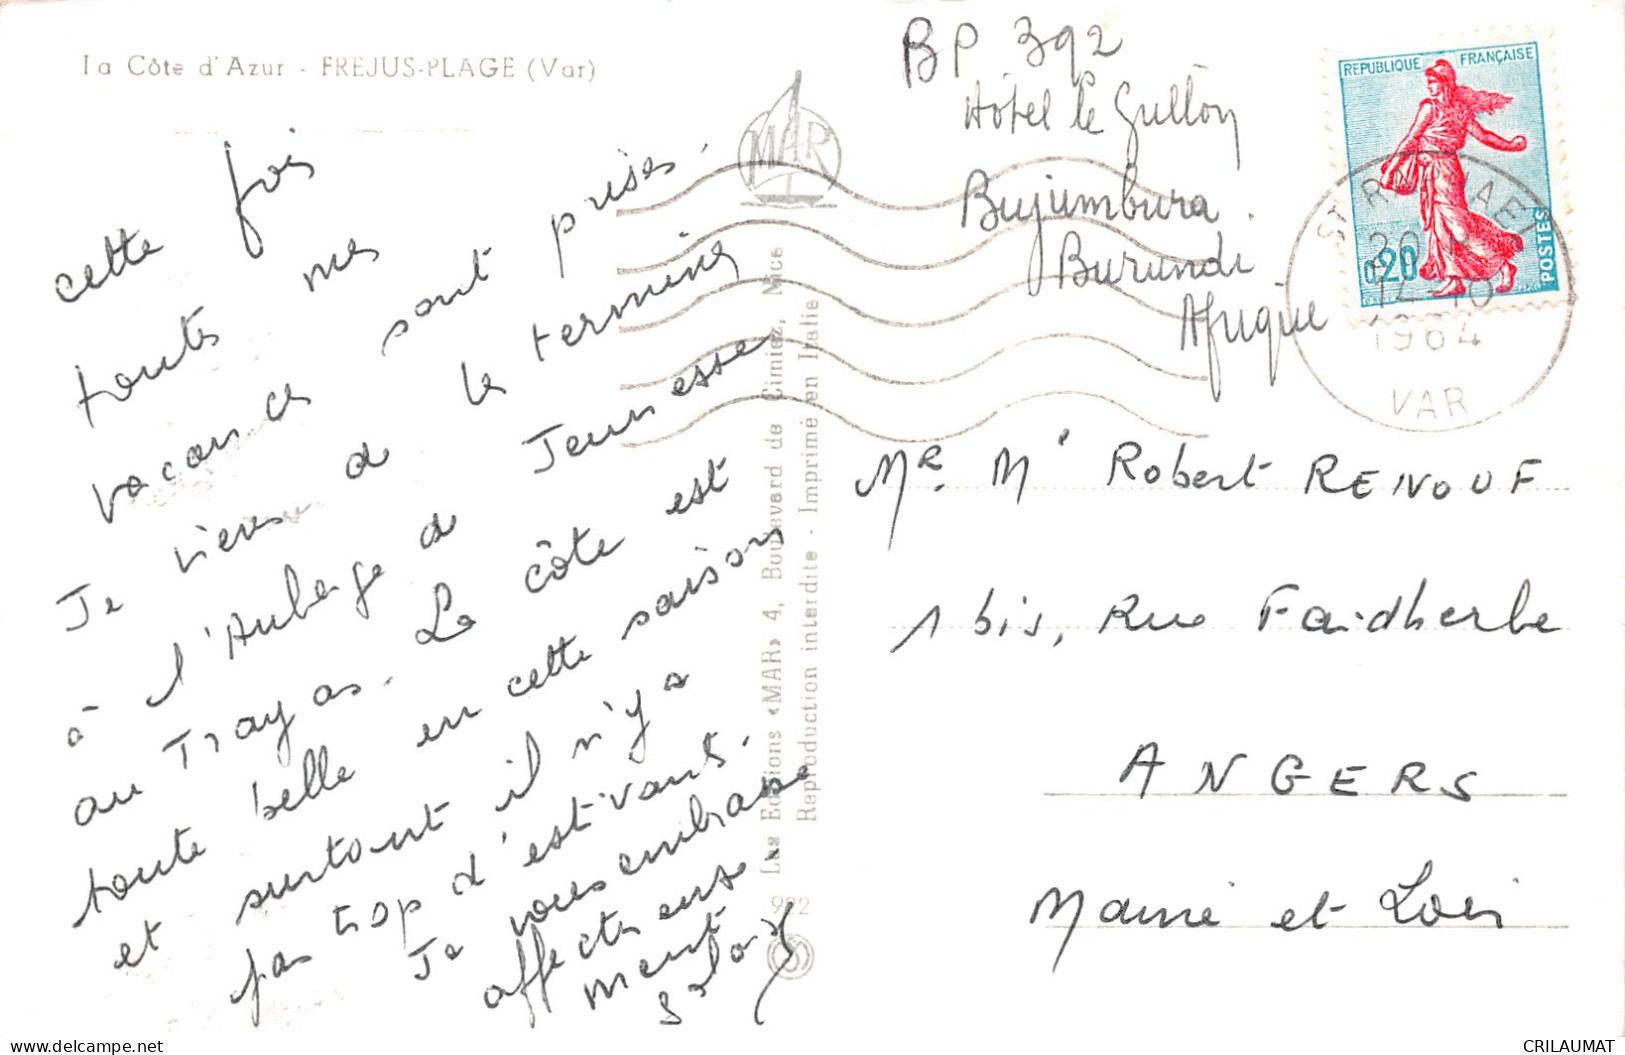 La Côte d'Azur - FREJUS-PLAGE (Var)
cette fois
toutes mes
vacances sont prises.
Je viens de le terminer
à l'Auberge de Jeunesse
au Trayas. La côte est
toute belle en cette saison
et surtout il n'y a
pas trop d'estivants.
Je vous embrasse
affectueuse
ment
MAR
Les Editions «MAR» 4, Boulevard de Cimiez, Nice
Reproduction interdite - Imprimé en Italie
992
BP 392
Hôtel le Gullon
Bujumbura.
Burundi
Afrique
REPUBLIQUE FRANÇAISE
0,20
POSTES
ST RAPHAEL
1964
VAR
Mr. Me Robert RENOUF
1 bis, Rue Faidherbe
ANGERS
Maine et Loir
CRILAUMAT
delcampe.net